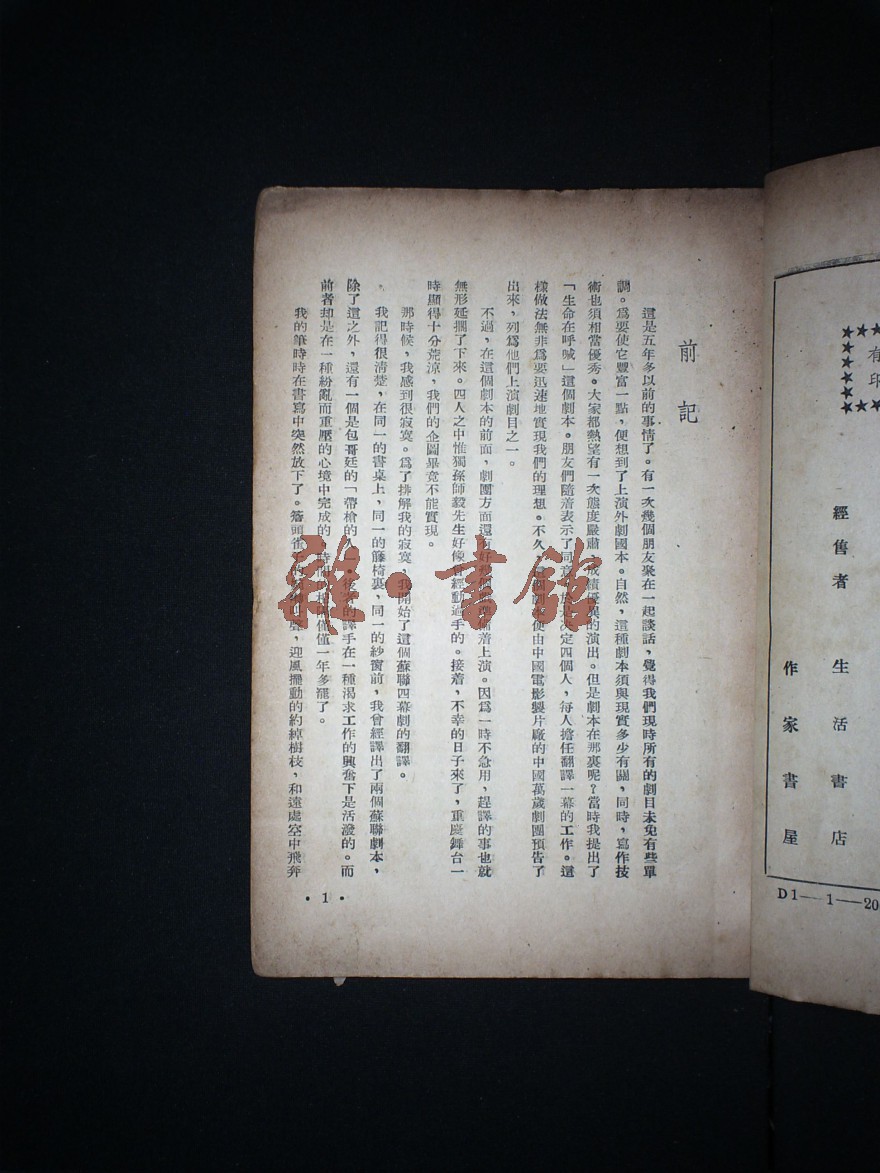 有
印
經售者
生活書店
作家書屋
D1——1——20
前記
這是五年多以前的事情了。有一次幾個朋友聚在一起談話,覺得我們現時所有的劇目未免有些單
調。爲要使它豐富一點,便想到了上演外劇國本。自然,這種劇本須與現實多少有關,同時,寫作技
術也須相當優秀。大家都熱望有一次態度嚴肅,成績優異的演出。但是劇本在那裏呢?當時我提出了
「生命在呼喊」這個劇本。朋友們隨着表示了同意,於是決定四個人,每人擔任翻譯一幕的工作。這
樣做法無非爲要迅速地實現我們的理想。不久,這個劇本便由中國電影製片廠的中國萬歲劇團預告了
出來,列爲他們上演劇目之一。
不過,在這個劇本的前面,劇團方面還有好幾個備着上演。因爲一時不急用,趕譯的事也就
無形延擱了下來。四人之中惟獨孫師毅先生好像曾經動過手的。接着,不幸的日子來了,重慶舞台一
時顯得十分荒涼,我們的企圖畢竟不能實現。
那時候,我感到很寂寞。爲了排解我的寂寞,我開始了這個蘇聯四幕劇的翻譯。
我記得很清楚,在同一的書桌上,同一的籐椅裏,同一的紗窗前,我曾經譯出了兩個蘇聯劇本,
除了這之外,還有一個是包哥廷的「帶槍的人」。後者的譯手在一種渴求工作的興奮下是活潑的。而
前者却是在一種紛亂而重壓的心境中完成的,時間僅僅一年多罷了。
我的筆時時在書寫中突然放下了。簷頭雀子的聲,迎風擺動的約綽樹枝,和遠處空中飛奔
• 1 •
雜·書館